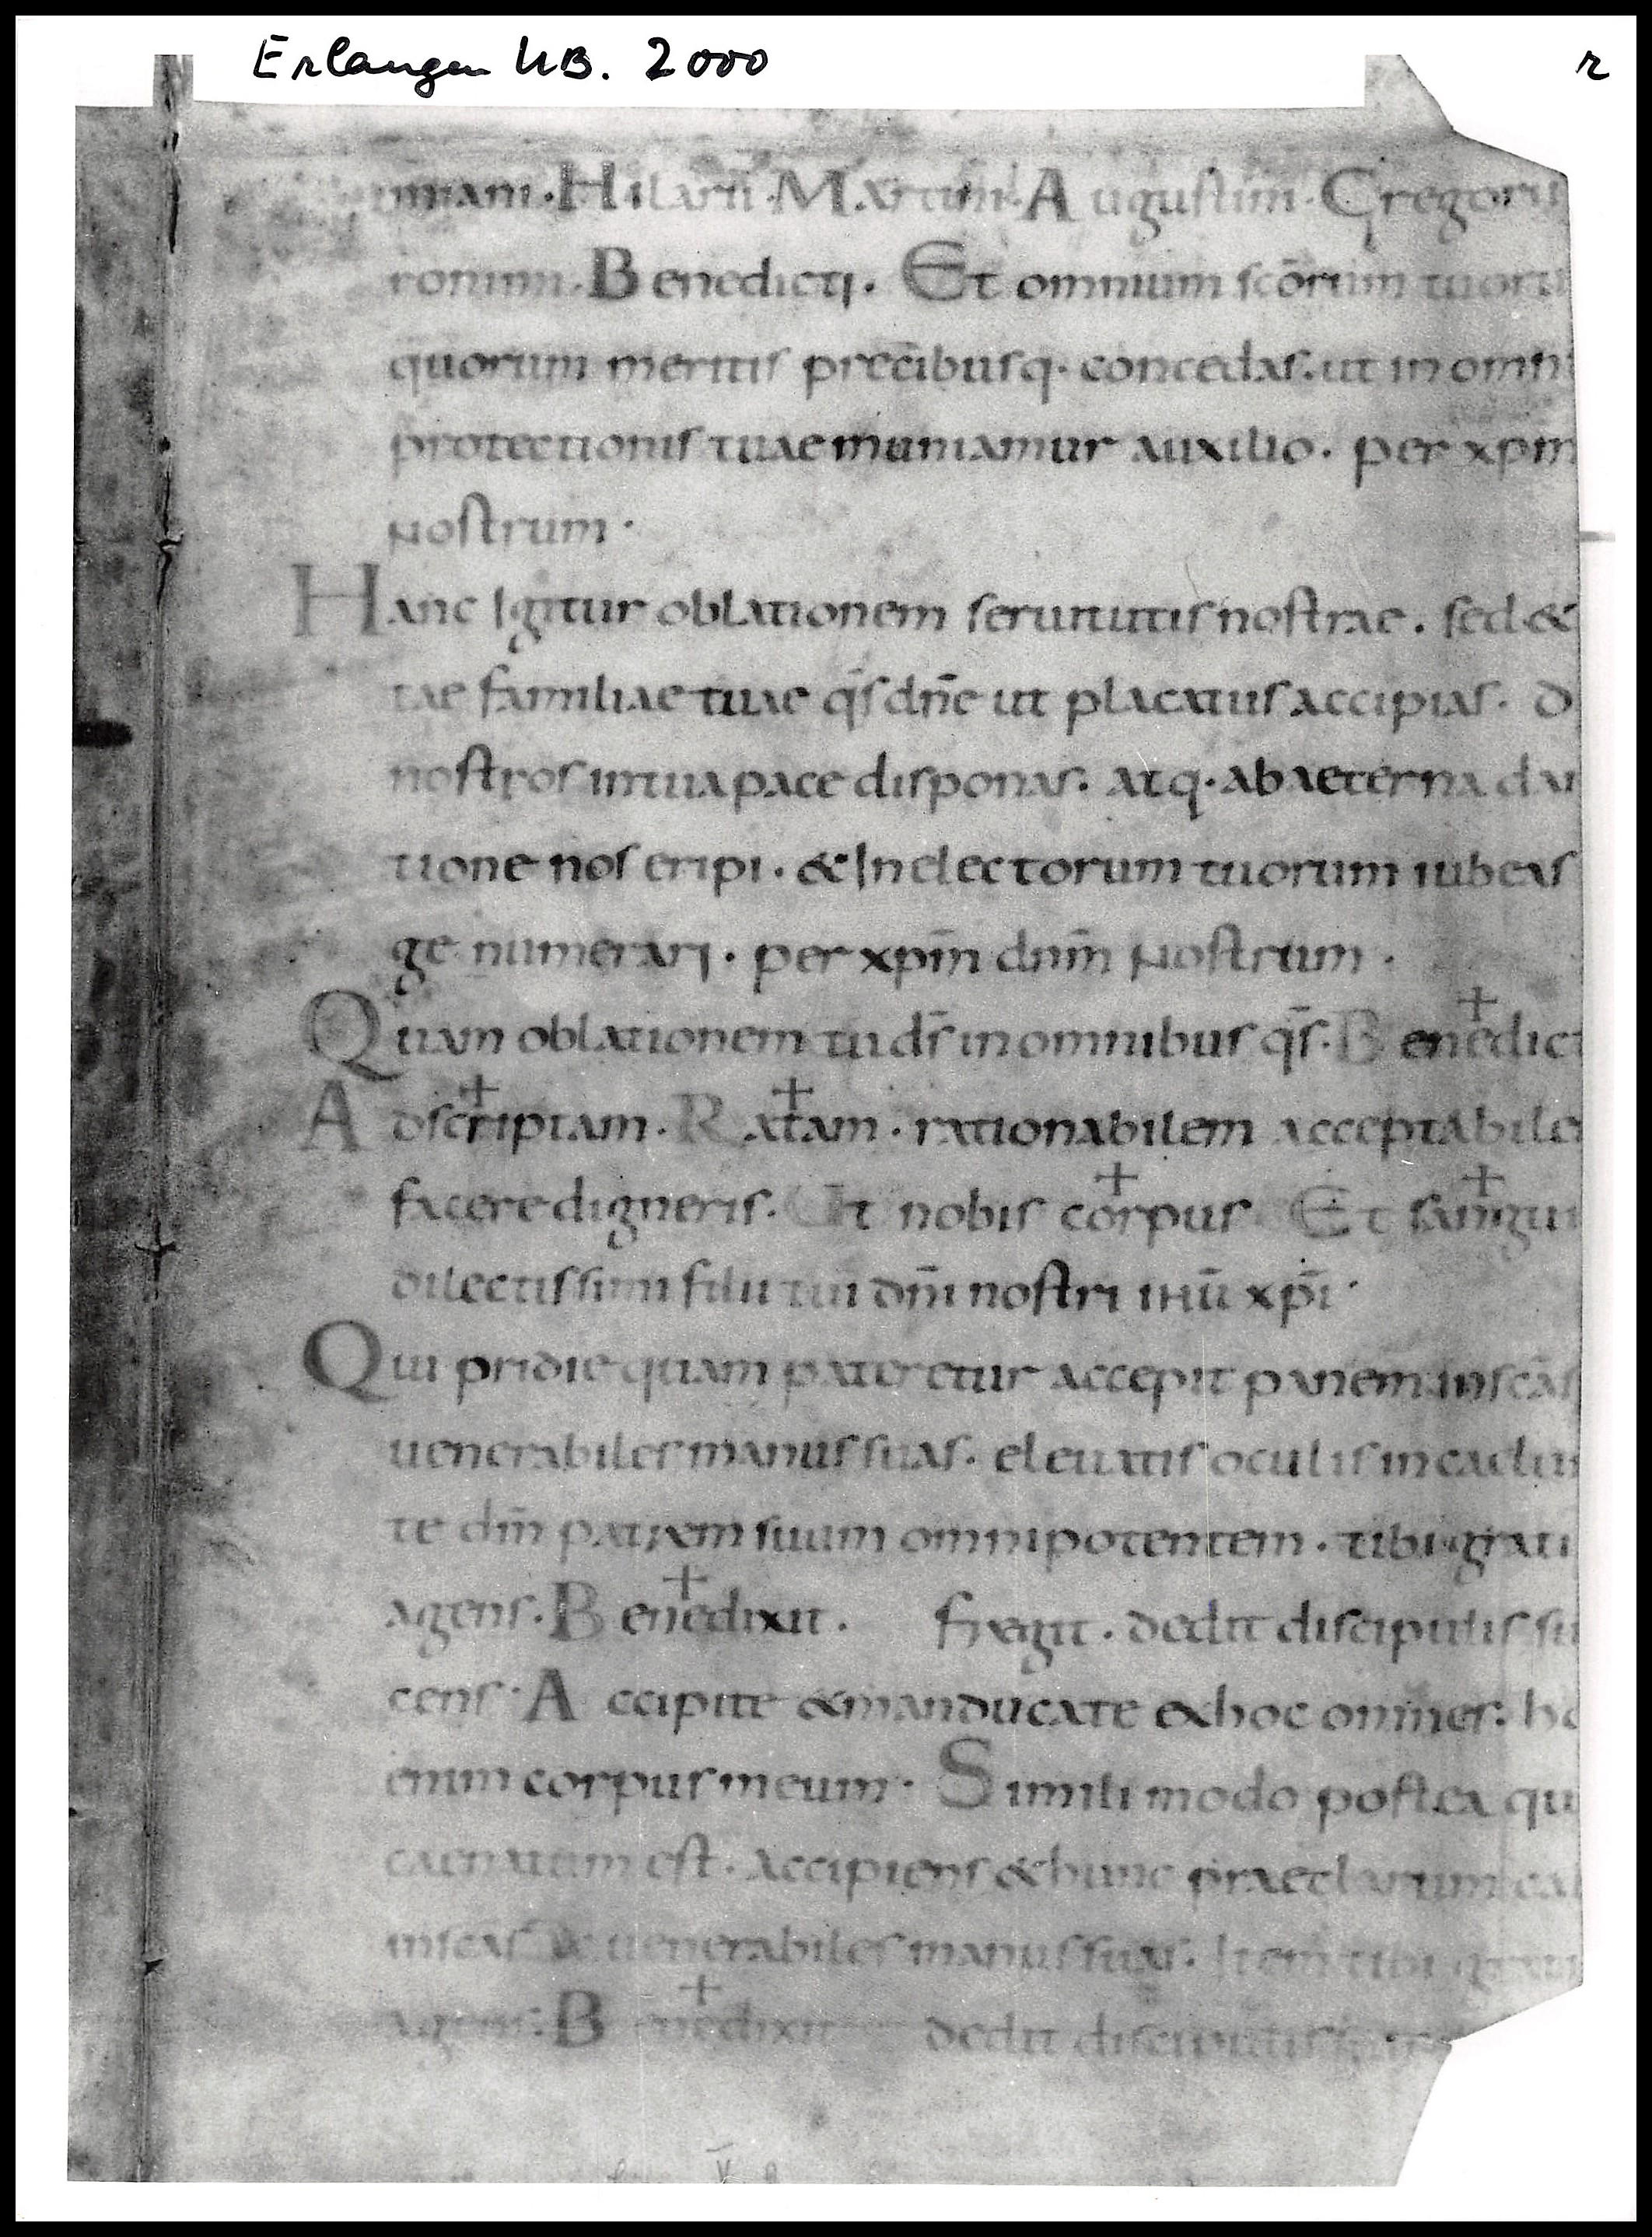 Erlangen UB. 2000 r
miani · Hilarii · Martini · Augustini · Gregorii
ronimi · Benedicti · Et omnium scōrum tuoru
quorum meritis precibusq· concedas. ut in omni
protectionis tuae muniamur auxilio · per xp̄m
Nostrum ·
Hanc Igitur oblationem seruitutis nostrae · sed &
tae familiae tuae q̄s dn̄e ut placatus accipias · d
nostros in tua pace disponas · atq· ab aeterna da
tione nos eripi · & In electorum tuorum iubeas
ge numerari · per xp̄m dn̄m Nostrum ·
Quam oblationem tu ds̄ in omnibus q̄s · Bene+dict
Adscr+iptam · Rat+am · rationabilem acceptabile
facere digneris · Ut nobis cor+pus Et san+gui
dilectissimi filii tui dn̄i nostri ihū xp̄i ·
Qui pridie quam pateretur accepit panem in scās
uenerabiles manus suas · eleuatis oculis in caelu
te dm̄ patrem suum omnipotentem · tibi grati
agens · Bene+dixit · fregit · dedit discipulis su
cens · Accipite & manducate ex hoc omnes : ho
enim corpus meum · Simili modo postea qu
caenatum est · accipiens & hunc praeclarum cal
in scās & uenerabiles manus suas · Item tibi grati
agens : Bene+dixit dedit discipulis